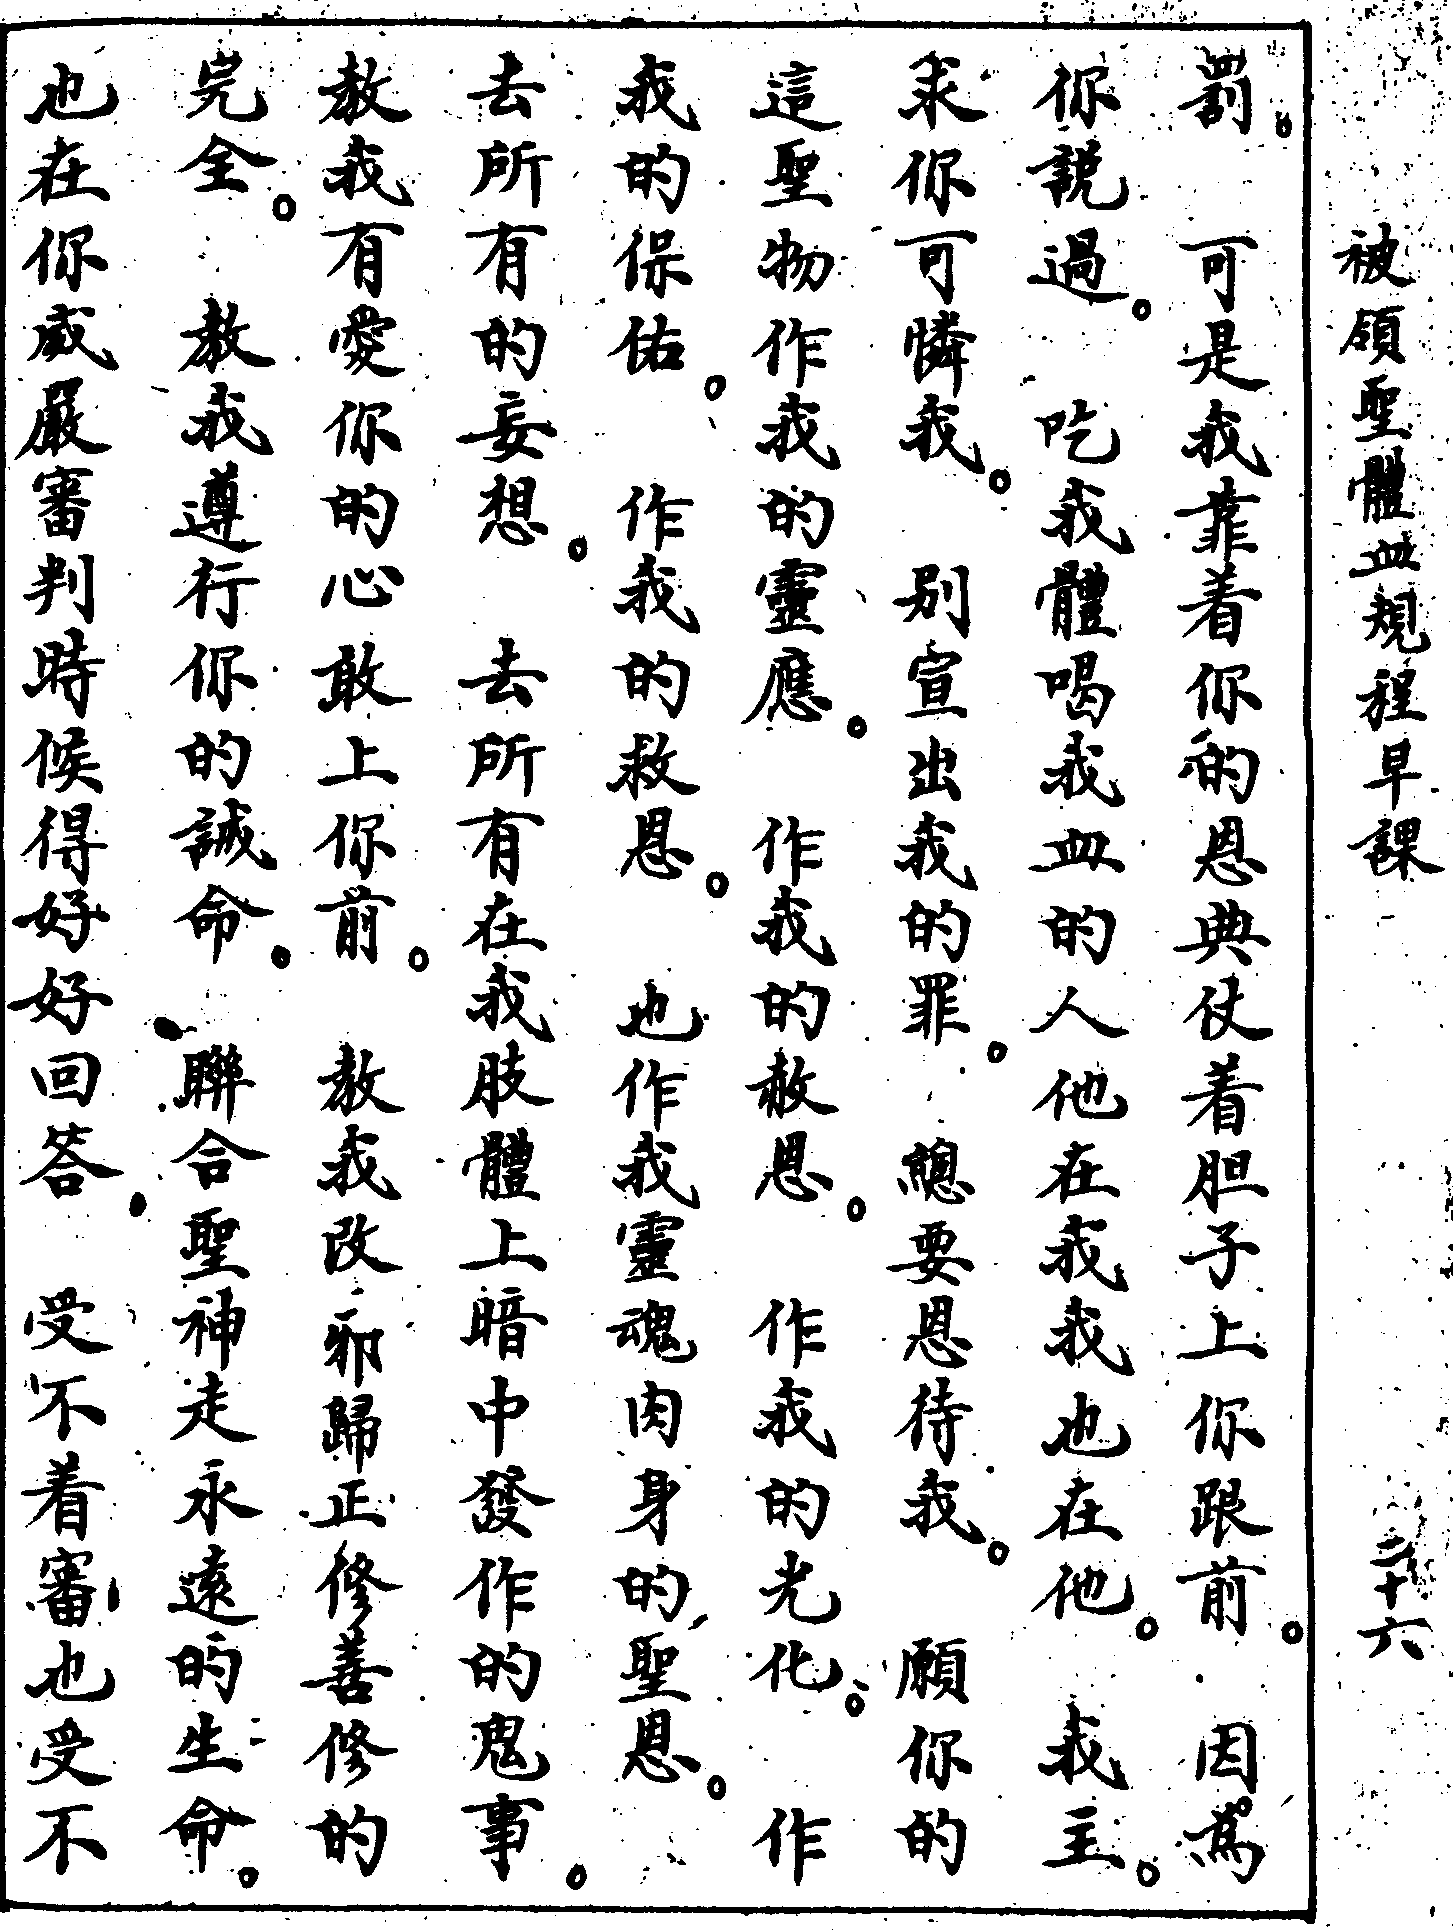 被領聖體血規程早課 二十六
罰。可是我靠着你的恩典仗着胆子上你跟前。因爲
你說過。吃我體喝我血的人他在我我也在他。我主。
求你可憐我。别宣出我的罪。總要恩待我。願你的
這聖物作我的靈應。作我的赦恩。作我的光化。作
我的保佑。作我的救恩。也作我靈魂肉身的聖恩。
去所有的妄想。去所有在我肢體上暗中發作的鬼事。
教我有愛你的心敢上你前。教我改邪歸正修善修的
完全。教我遵行你的誡命。聯合聖神走永遠的生命。
也在你威嚴審判時候得好好回答。受不着審也受不